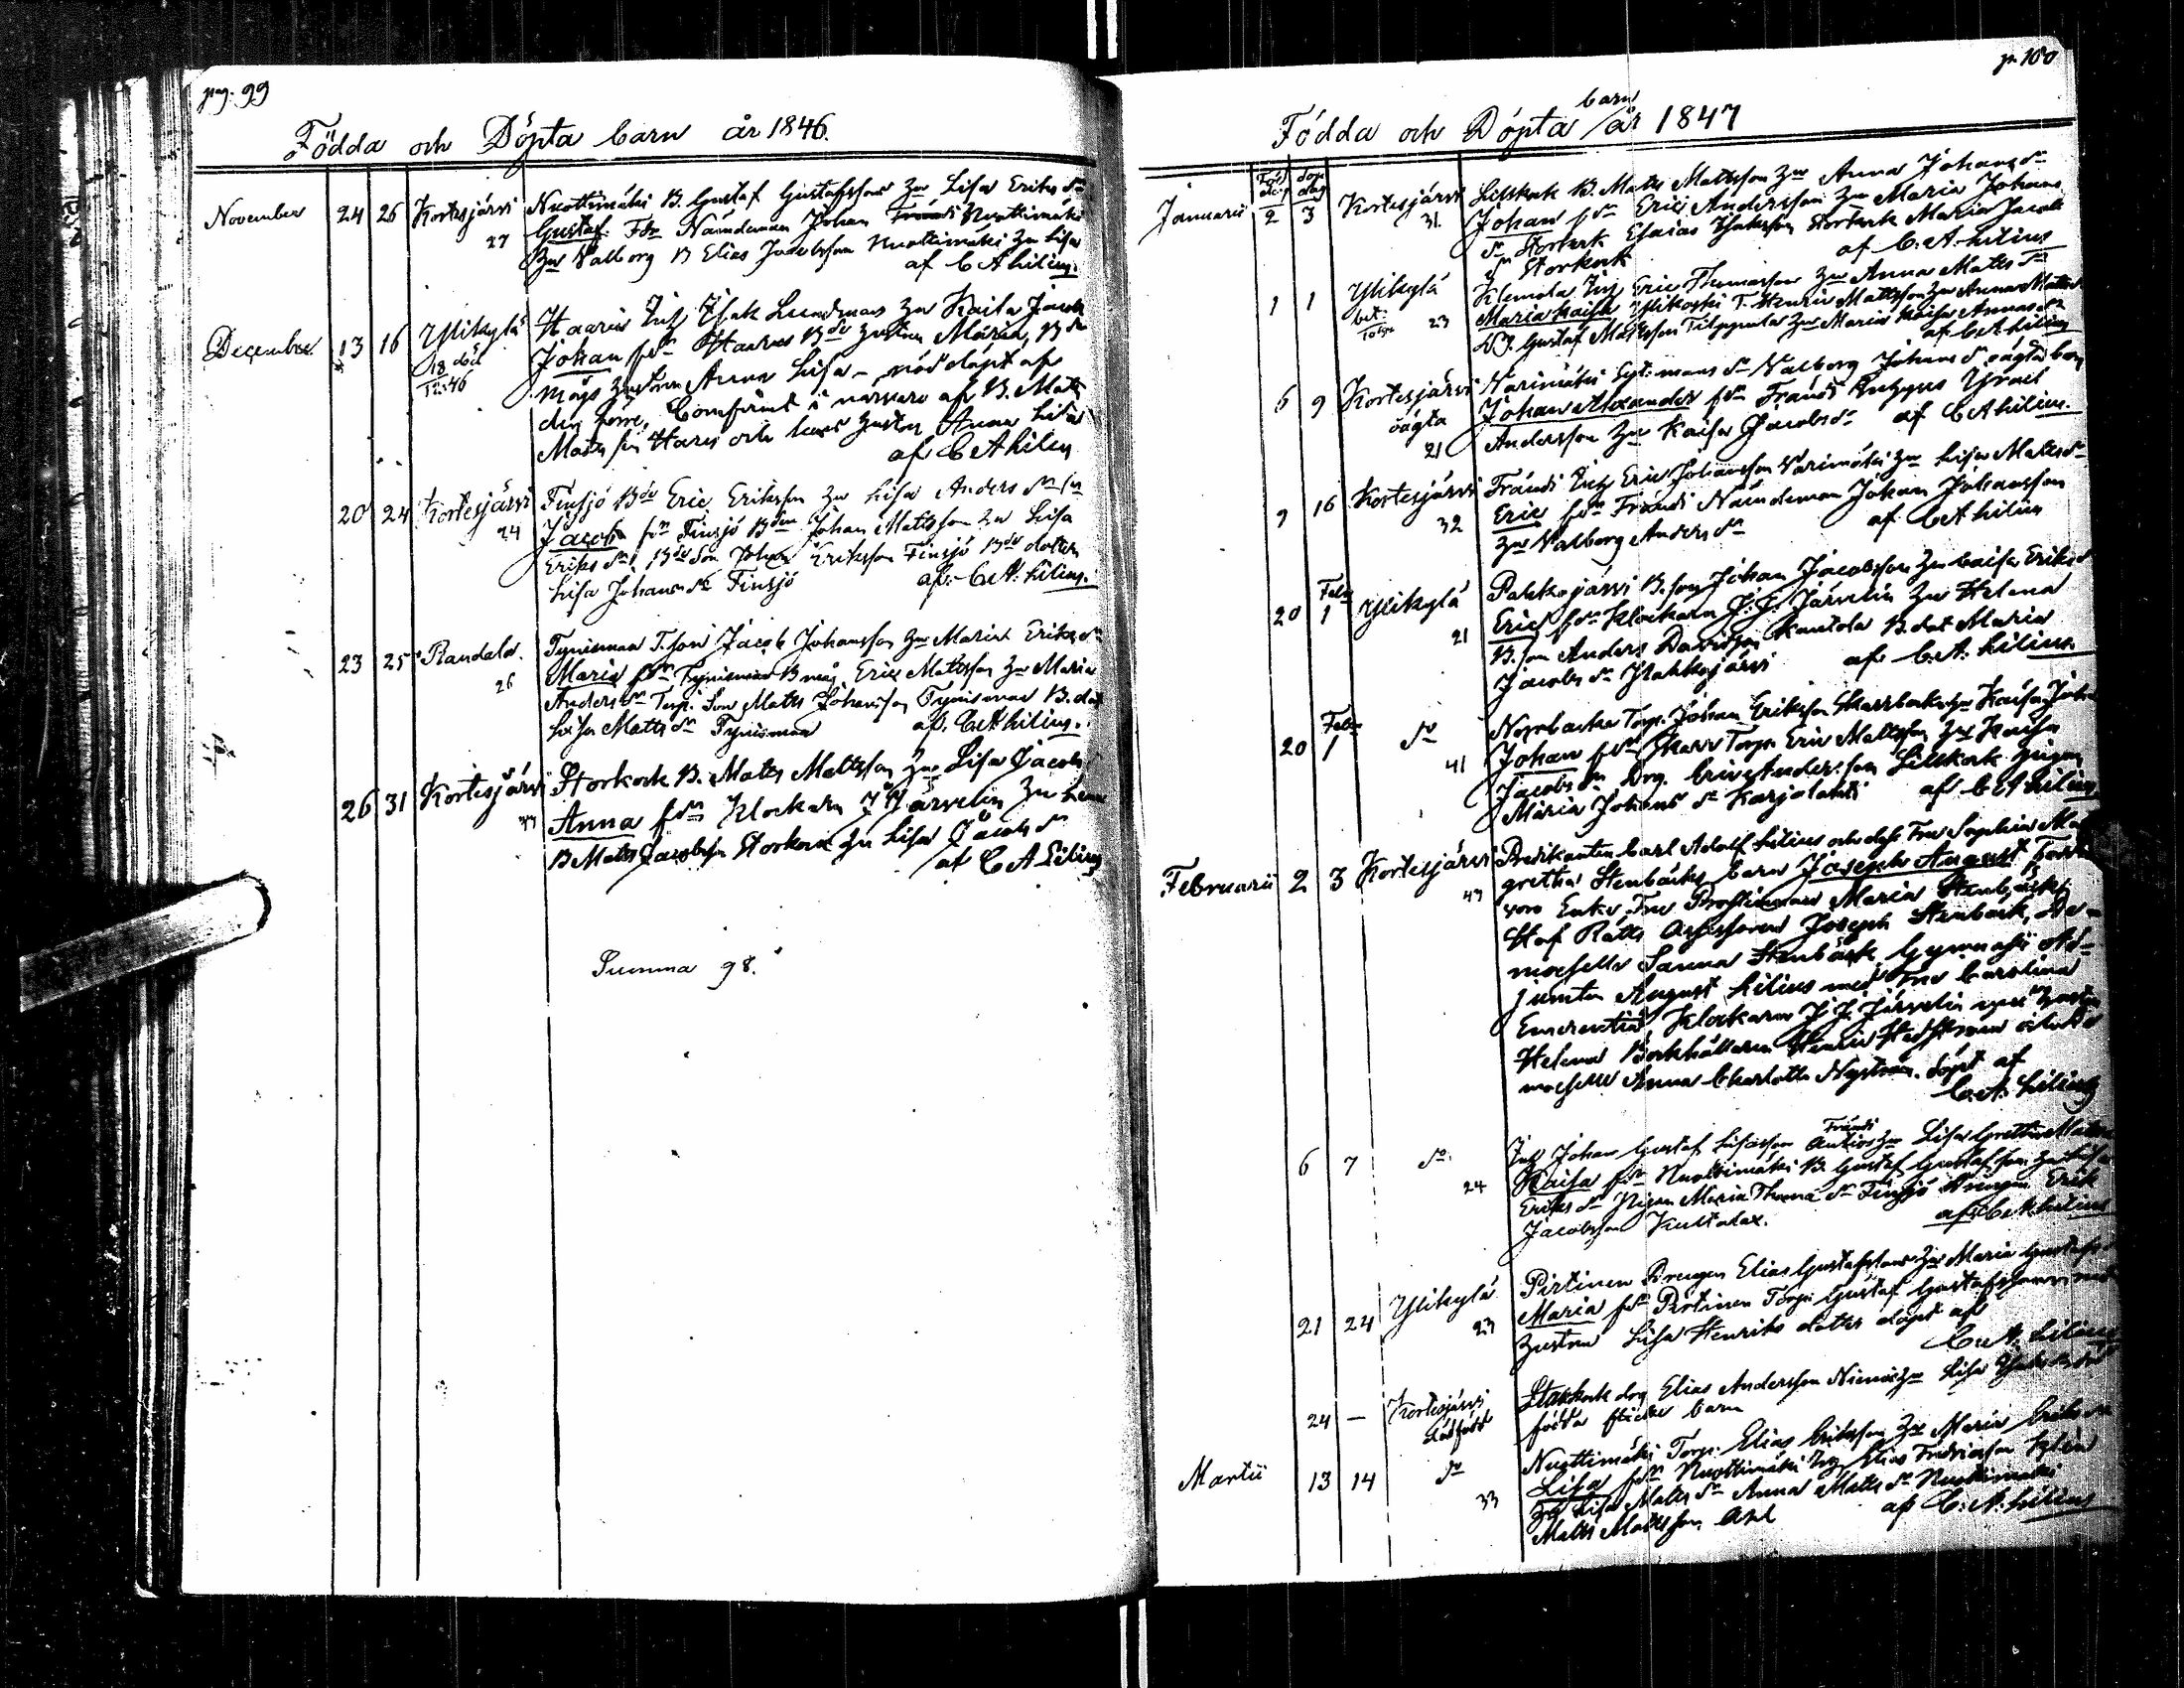 pag. 99
Födda och Döpta barn år 1846.
November 24 26 Kortesjärvi Nuottimäki B. Gustaf Gustafsson Hu Lisa Eriks dr
27 Gustaf. Fdr Nämdeman Johan Nuottimäki
Hu Valborg B Elias Jacobsson Nuottimäki Hu Lisa
af C A Lilius.
December 13 16 Ylikylä Haaru Inh Isak Lundman Hu Kaisa Jacobs
18 död Johan fdr Haarus Bdr hustru Maria, Bdr
12.46 mågs hustrun Anna Lisa – nöddöpt af
den förre, Confirmt i närvaro af B. Matts
Matts son Haru och hans hustru Anna Lisa
af C A Lilius
20 24 Kortesjärvi Finsjö Bdr Eric Eriksson Hu Lisa Anders dr
24 Jacob fdr Finsjö Bden Johan Mattsson Hu Lisa
Eriks dr, Bdr Son Johan Eriksson Finsjö Bdr dotter
Lisa Johans dr Finsjö af C. A. Lilius.
23 25 Randala Tynismaa T. Son Jacob Johansson Hu Maria Eriks dr
26 Maria fdr Tynismaa B måg Eric Mattsson Hu Maria
Anders dr Torp. Son Matts Johansson Tynismaa B. dot
Lisa Matts dr Tynismaa af. C A Lilius.
26 31 Kortesjärvi Storkock B. Matts Mattsson Hu Lisa Jacobs
Anna fdr Klockarn J J Järvelin Hu Lena
B Matts Jacobsson Storkock Hu Lisa Jacobs dr
af C A Lilius
Summa 98.
p. 100
barn
Födda och Döpta år 1847
Föd dag Döp dag
Januarii 2 3 Kortesjärvi Lillkock B. Matts Mattsson Hu Anna Johans dr
31 Johan fdr Eric Andersson Hu Maria Johans
dr Storkock Esaias Isaksson Storkock Maria Jacobs
dr Storkock af C. A. Lilius
1 1 Ylikylä Klemola Inh Eric Thomasson Hu Anna Matts dr
23 Maria Kaisa Ylikoski T. Henric Mattsson Hu Anna Matts
Gustaf Mattsson Hu Maria Kaisa
af C A Lilius
6 9 Kortesjärvi Narimäki Sytnings dr Valborg Johans dr oägta barn
oägta Johan Alexander fdr Frändi Israel
21 Andersson Hu Kaisa Jacobs dr af C A Lilius.
9 16 Kortesjärvi Frändi Inh Eric Johansson Narimäki Hu Lisa Matts dr
32 Eric fdr Frändi Nämdeman Johan Johansson
Hu Valborg Anders dr af C A Lilius
20 Febr 1 Ylikylä Pahkajärvi B. son Johan Jacobsson Hu Caisa Eriks dr
21 Eric fdr Klockarn J. J. Järvelin Hu Helena
B. son Anders Davidsson Kantola B. dot Maria
Jacobs dr Pahkajärvi af C. A. Lilius
20 Febr 1 dr Norrbacka Torp. Johan Eriksson Skarrbacka Hu Kaisa Johans
41 Johan fdr Skarr Torp. Eric Mattsson Hu Kaisa
Jacobs dr Drg. Eric Andersson Lillkock Pigan
Maria Johans dr Karjalahti af C A Lilius.
Februarii 2 3 Kortesjärvi Predikanten Carl Adolf Lilius och dess Fru Sophia Mar
43 gretha Stenbäcks barn Joseph August
voro Enke Fru Prostinnan Maria Stenbäck,
Hof Rätts Assessoren Joseph Stenbäck, De-
moiselle Sanna Stenbäck, Gymnasii Ad-
junkten August Lilius med Fru Carolina
Emerentia, Klockaren J. J. Järvelin med hustru
Helena Bokhållaren Henric Hedström De
moiselle Anna Charlotta Nyström. döpt af
C. A. Lilius
6 7 dr Inh Johan Gustaf Lisasson Frändi Hu Lisa Gretha Matts
24 Kaisa fdr Nuottimäki B. Gustaf Gustafsson Hu Lisa
Eriks dr Pigan Maria Thoma dr Finsjö Drengen Erik
Jacobsson Kultalax. af C A Lilius
21 24 Ylikylä Pirtinen Drengen Elias Gustafsson Hu Maria Gustafs
23 Maria fdr Pirtinen Torp. Gustaf Gustafsson med
hustrun Lisa Henriks dotter döpt af
C. A. Lilius
24 — Kortesjärvi Stakkock drg Elias Andersson Niemi Hu Lisa
dödfödt födda flicke barn
Martii 13 14 dr Nuottimäki Torp. Elias Eriksson Hu Maria Eriks dr
33 Lisa fdr Nuottimäki Drg Elias Fredricsson
Lisa Matts dr Anna Matts dr Nuottimäki
Matts Mattsson af C. A. Lilius